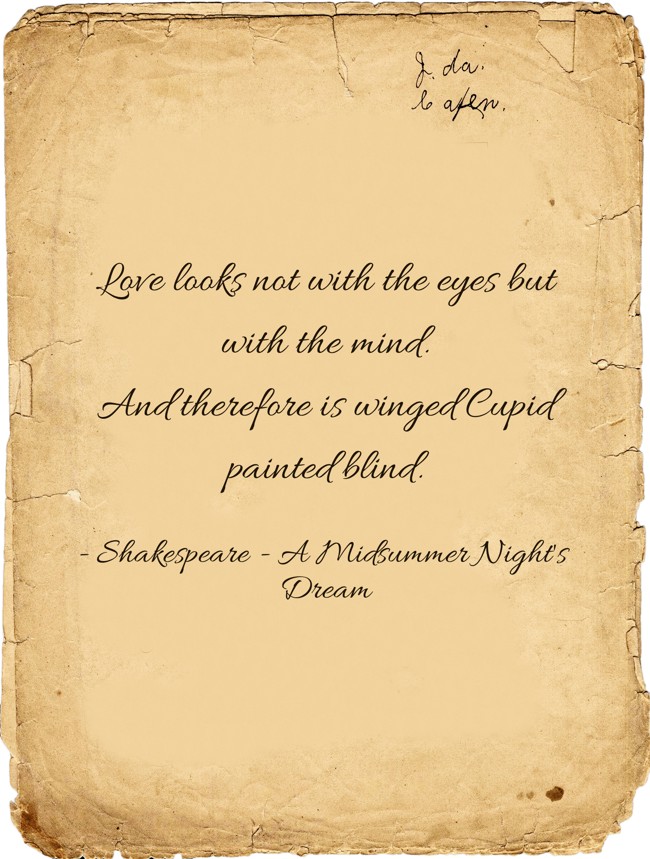 Love looks not with the eyes but
with the mind.
And therefore is winged Cupid
painted blind.
- Shakespeare - A Midsummer Night's
Dream